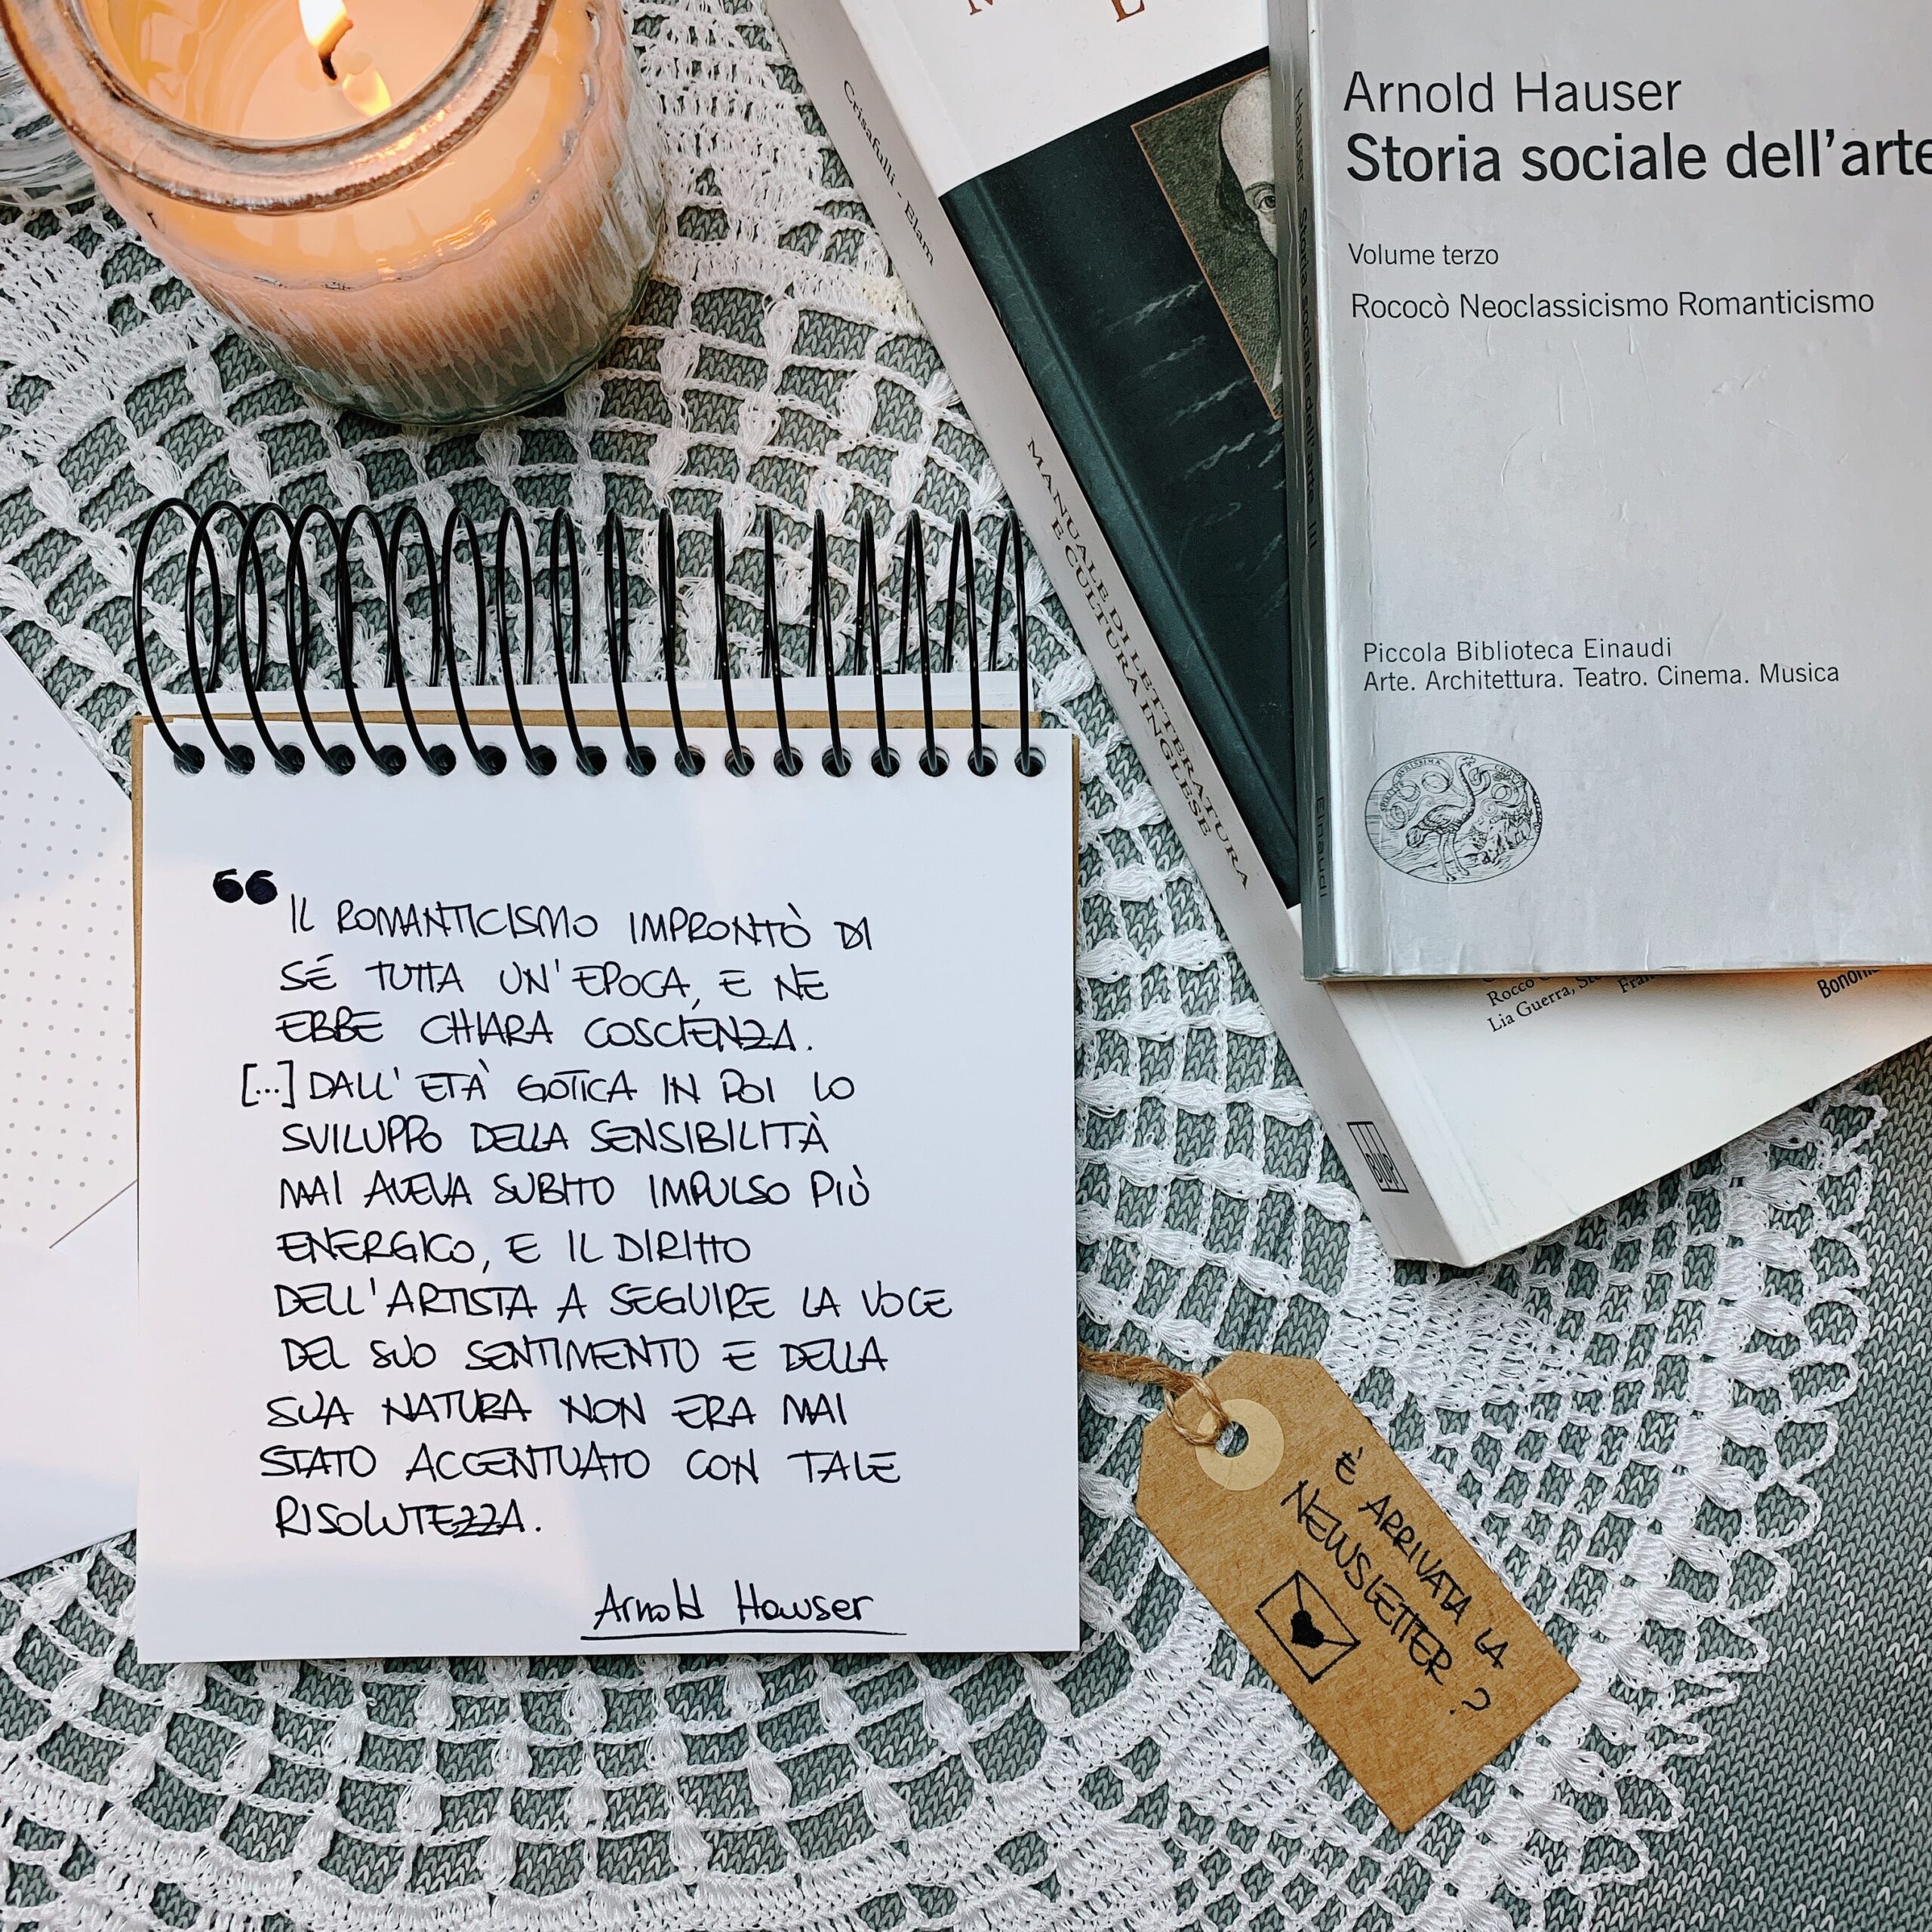 Arnold Hauser
Storia sociale dell'arte
Volume terzo
Rococò Neoclassicismo Romanticismo
Piccola Biblioteca Einaudi
Arte. Architettura. Teatro. Cinema. Musica
Hauser Storia sociale dell'arte III Einaudi
Crisafulli - Elam
MANUALE DI LETTERATURA
E CULTURA INGLESE
bup
Rocco
Lia Guerra,
“IL ROMANTICISMO IMPRONTÒ DI
SÉ TUTTA UN'EPOCA, E NE
EBBE CHIARA COSCIENZA.
[...] DALL'ETÀ GOTICA IN POI LO
SVILUPPO DELLA SENSIBILITÀ
MAI AVEVA SUBITO IMPULSO PIÙ
ENERGICO, E IL DIRITTO
DELL'ARTISTA A SEGUIRE LA VOCE
DEL SUO SENTIMENTO E DELLA
SUA NATURA NON ERA MAI
STATO ACCENTUATO CON TALE
RISOLUTEZZA.
Arnold Hauser
È ARRIVATA LA
NEWSLETTER?